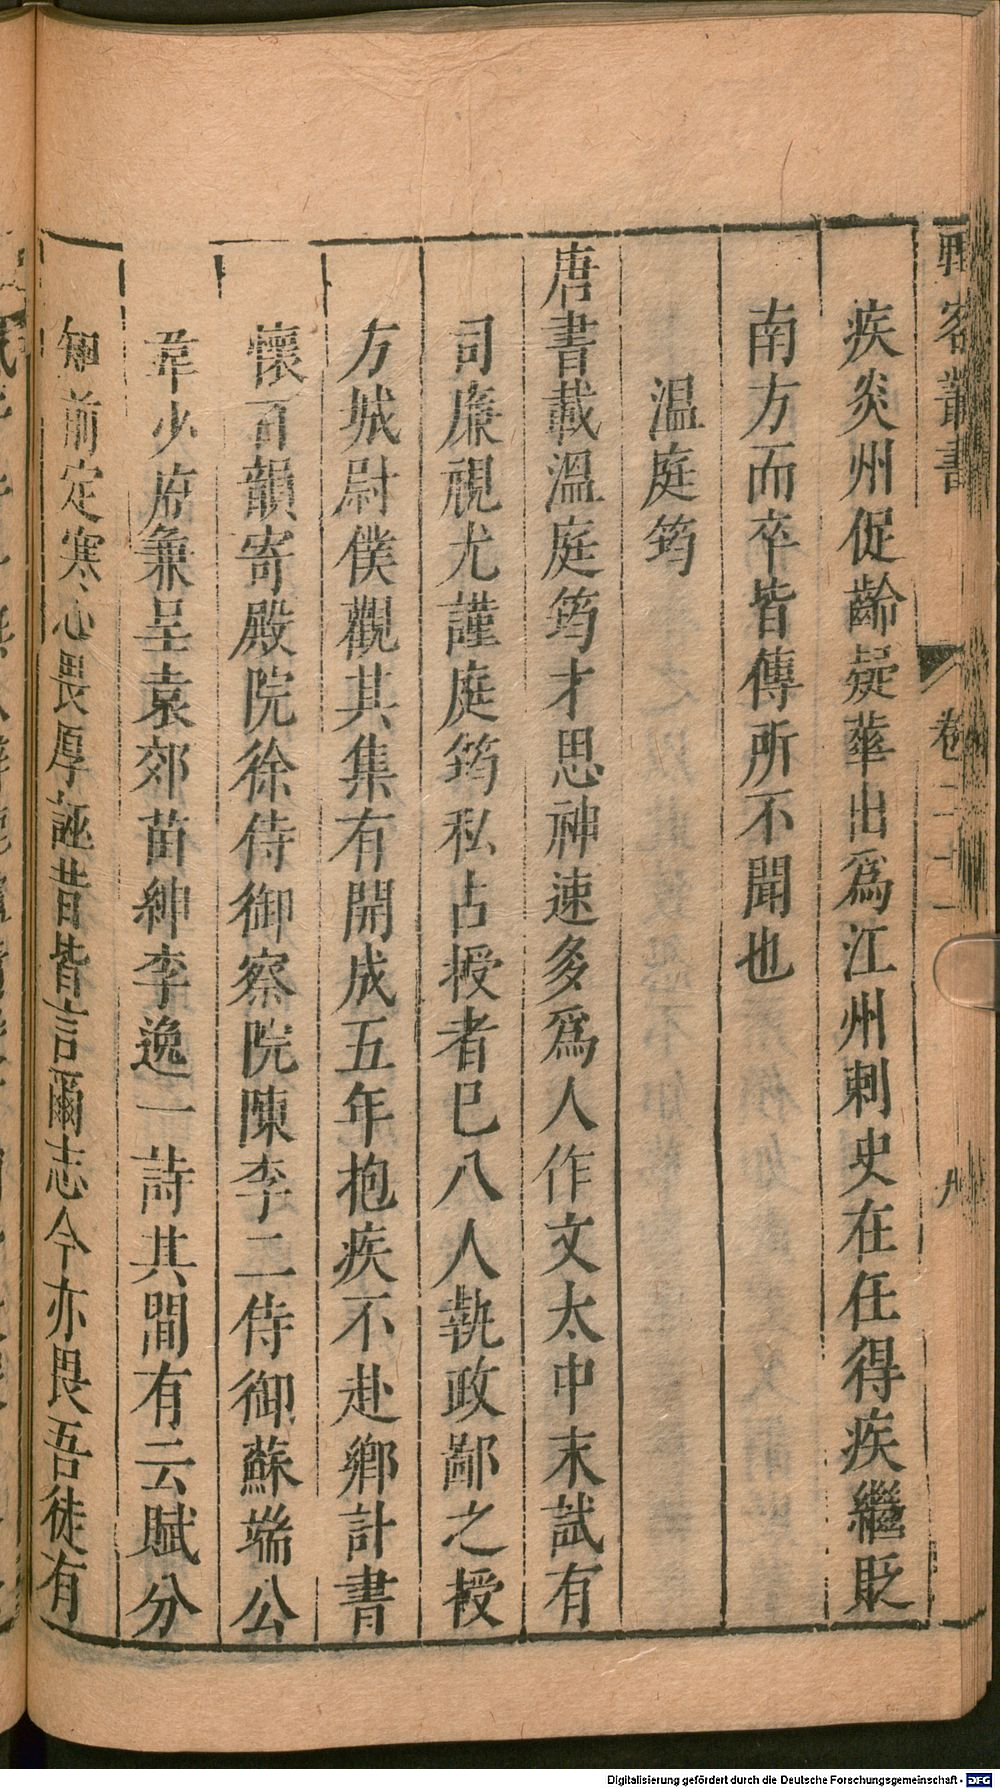 野客叢書
卷二十一
九
疾炎州促齡疑華出爲江州刺史在任得疾繼貶
南方而卒皆傳所不聞也
温庭筠
唐書載溫庭筠才思神速多爲人作文大中末試有
司廉視尤謹庭筠私占授者已八人執政鄙之授
方城尉僕觀其集有開成五年抱疾不赴鄉計書
懷百韻寄殿院徐侍御察院陳李二侍御蘇端公
韋少府兼呈袁郊苗紳李逸一詩其間有云賦分
知前定寒心畏厚誣昔皆言爾志今亦畏吾徒有
Digitalisierung gefördert durch die Deutsche Forschungsgemeinschaft - DFG